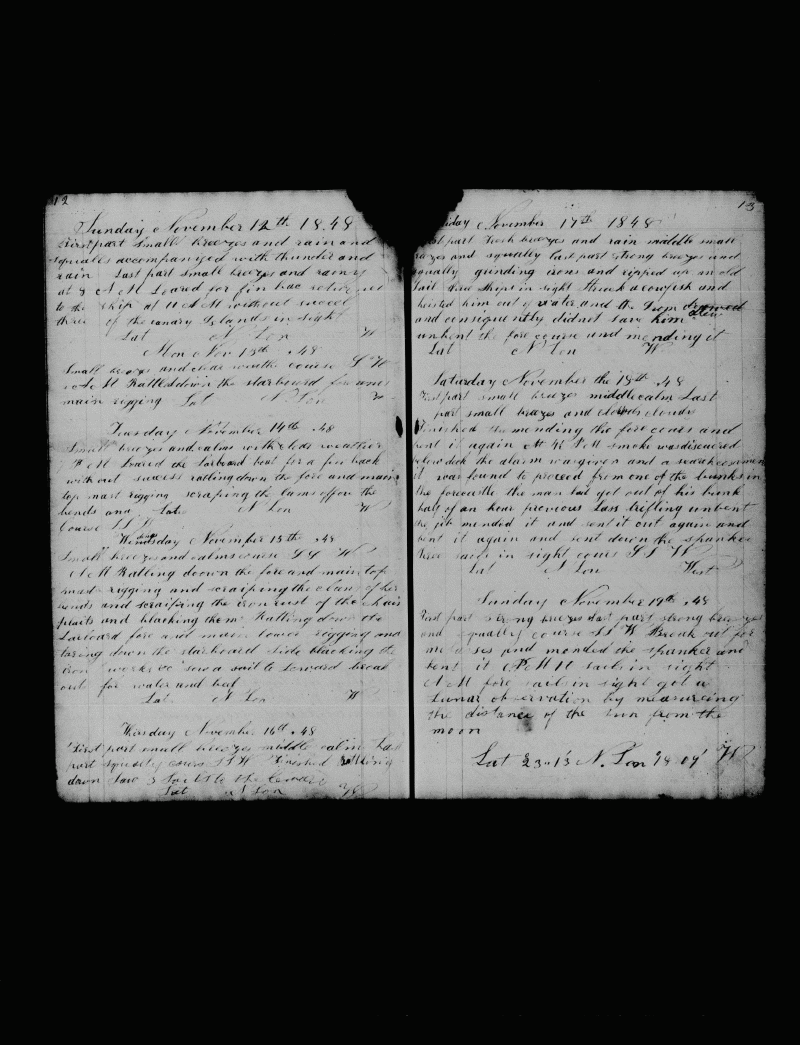 12
Sunday November 12th 1848
First part small breezes and rain and
squales accompanyed with thunder and
rain Last part small breezes and rainy
at 8 A M Loared for fin bac returned
to the ship at 11 A M without sucsess
three of the canary Islands in sight
Lat N Lon W
Mon Nov 13th 48
Small breezes and clear weather course S W
A M Rattled down the starboard fore and
main rigging Lat N Lon
Tuesday November 14th 48
Small breezes and calms with clear weather
A M Loared the Larboard boat for a fin back
without sucsess ratling down the fore and main
top mast rigging scraping the off on the
bends and Lat N Lon W
Course S S W
Wensday November 15th 48
Small breezes and calms course S W
A M Ratling doown the fore and main top
mast rigging and scraiping the of her
bends and scraiping the iron rust of the chain
plaits and blacking them Ratling down the
Larboard fore and main lower rigging and
taring down the starboard side blacking the
iron works sow a sail to Leward break
out for water and beef
Lat N Lon W
Thirsday November 16th 48
First part small breezes middle calm Last
part squaley cours S S W Finished rattling
down saw 3 sails to the Leward
Lat N Lon W
13
Friday November 17th 1848
First part Fresh breezes and rain middle small
breezes and squalley last part strong breezes and
squally grinding irons and ripped up an old
sail three ships in sight Struck a cowfish and
hoisted him out of water and the Iron drawed
and consiquently did not save him
unbent the fore course and mending it
Lat N Lon W
Saturday November the 18th 48
First part small breezes middle calm Last
part small breezes and clouds
Finished the mending the fore cours and
bent it again At P M smoke was discovered
below deck the alarm was given and a search commen
it was found to proceed from one of the bunks in
the forecastle the man had got out of his bunk
half of an hour previous Last trifling unbent
the jib mended it and sent it out again and
bent it again and sent down the spanker
three sails in sight cours S S W
Lat N Lon West
Sunday November 19th 48
First part strong breezes last part strong breezes
and squally course S S W Break out for
molasses and monded the spanker and
bent it P M 11 sails in sight
A M fore sails in sight got a
Lunar observation by measureing
the distance of the sun from the
moon
Lat 23 13 N. Lon 28 09 W